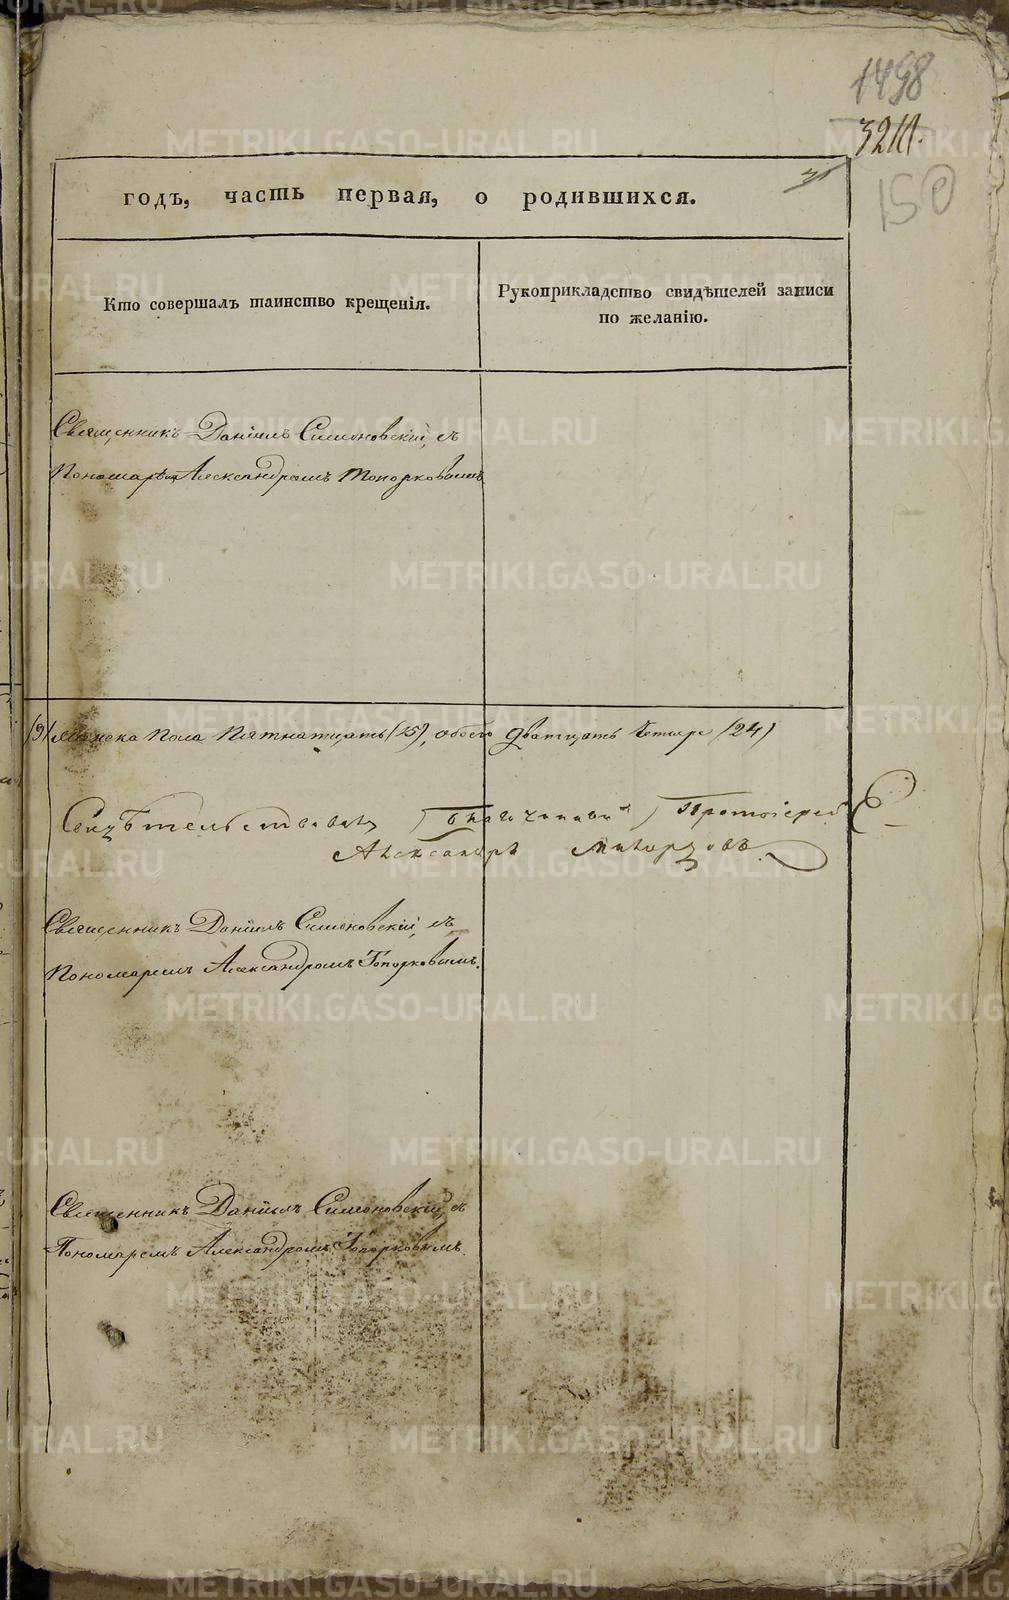 1498
150
годъ, часть первая, о родившихся.
Кто совершалъ таинство крещенія.
Рукоприкладство свидѣтелей записи
по желанію.
Священникъ Даніилъ Симоновскій, съ
Пономарёмъ Александромъ Топорковымъ
(9) женска пола Пятнатцать (15), обоего дватцать четыре (24)
Свидѣтельствовалъ Благочинный Протоіерей
Александръ
Священникъ Даніилъ Симоновскій, съ
Пономаремъ Александромъ Топорковымъ.
Священникъ Даніилъ Симоновскій, съ
Пономаремъ Александромъ Топорковымъ.
METRIKI.GASO-URAL.RU